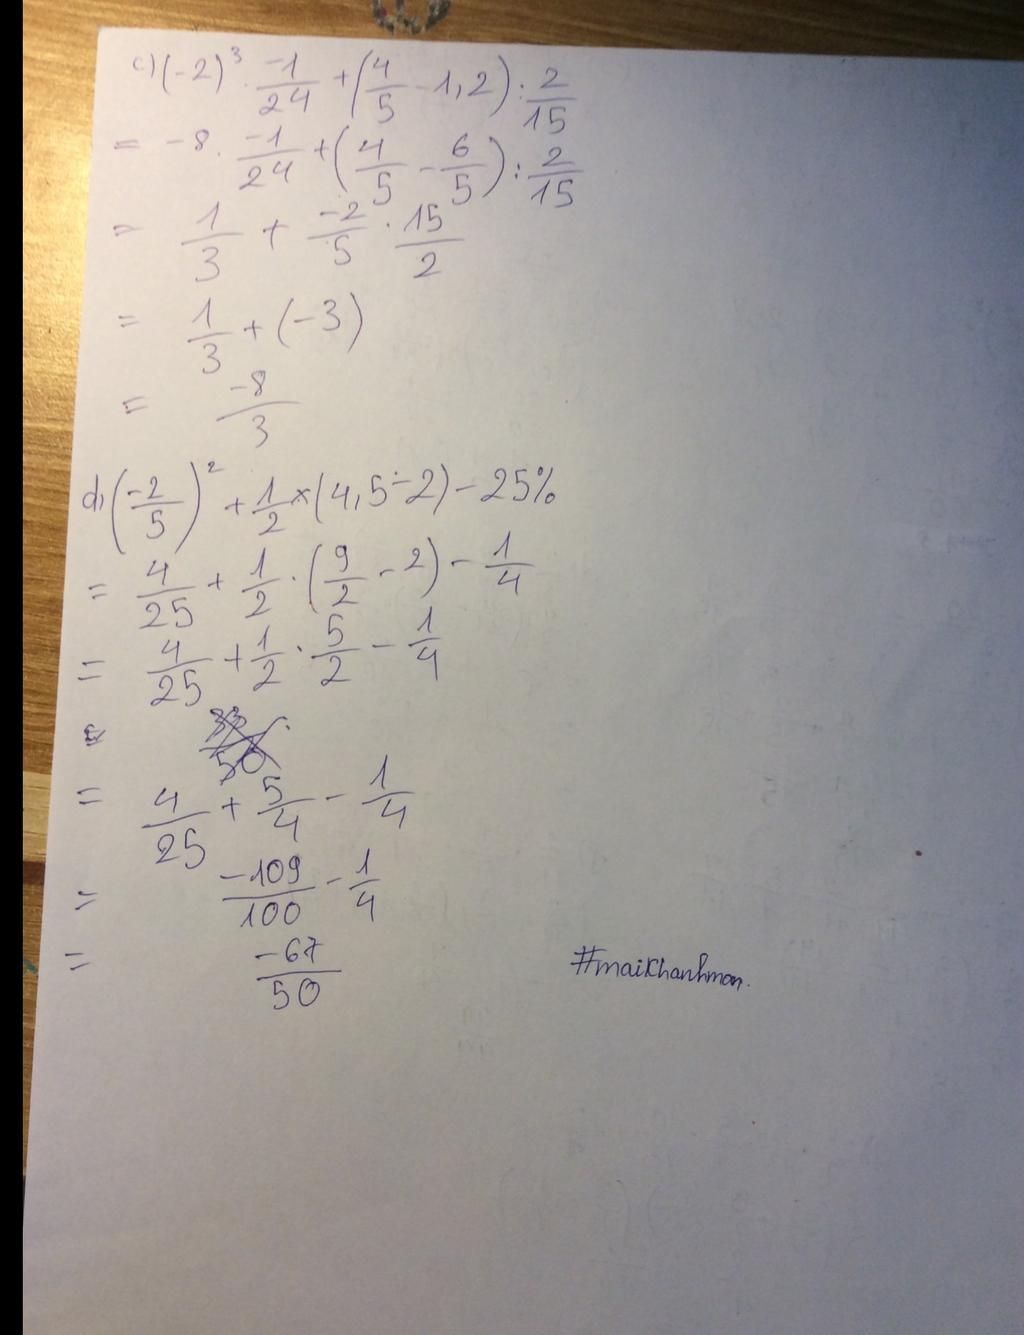 c) (-2)³ . -1/24 + (4/5 - 1,2) : 2/15
= -8 . -1/24 + (4/5 - 6/5) : 2/15
= 1/3 + -2/5 . 15/2
= 1/3 + (-3)
= -8/3
d) (-2/5)² + 1/2 × (4,5 - 2) - 25%
= 4/25 + 1/2 . (9/2 - 2) - 1/4
= 4/25 + 1/2 . 5/2 - 1/4
= 4/25 + 5/4 - 1/4
= -109/100 - 1/4
= -67/50
#maikhanhmon.